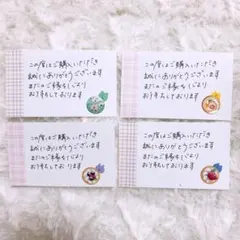 この度はご購入いただき
誠にありがとうございます
またのご縁を心より
お待ちしております
この度はご購入いただき
誠にありがとうございます
またのご縁を心より
お待ちしております
この度はご購入いただき
誠にありがとうございます
またのご縁を心より
お待ちしております
この度はご購入いただき
誠にありがとうございます
またのご縁を心より
お待ちしております